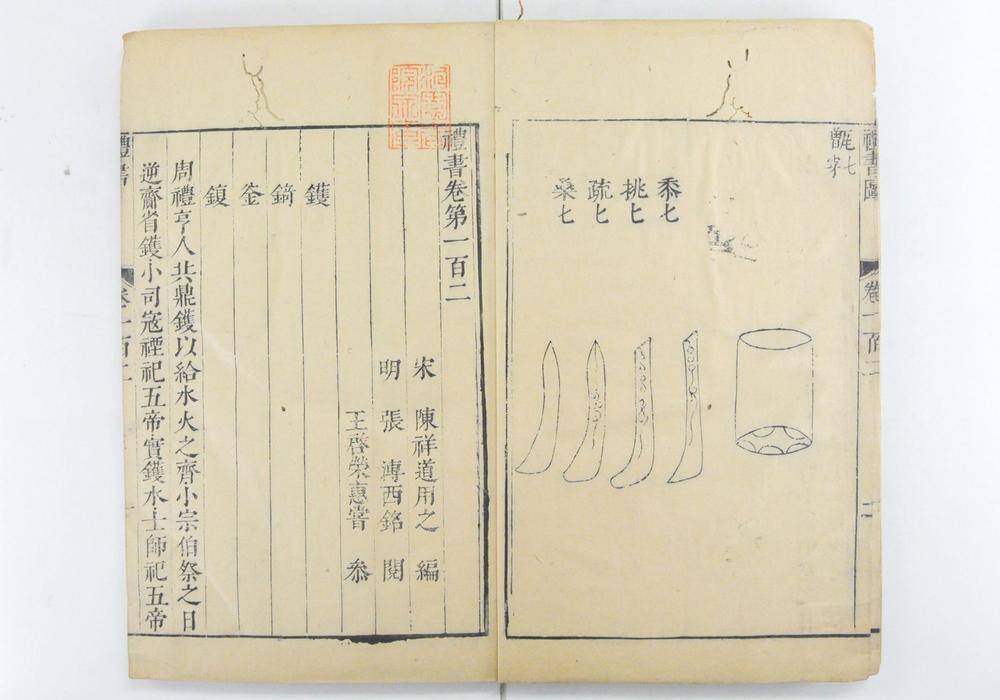 禮書圖
卷一百二
甑七穿
黍匕
挑匕
疏匕
桑匕
禮書卷第一百二
宋 陳祥道用之 編
明 張 溥西銘 閱
王啓榮惠嘗 叅
鑊
錡
釜
鍑
周禮亨人共鼎鑊以給水火之齊小宗伯祭之日
逆齋省鑊小司宼禋祀五帝實鑊水士師祀五帝
禮書
卷一百二